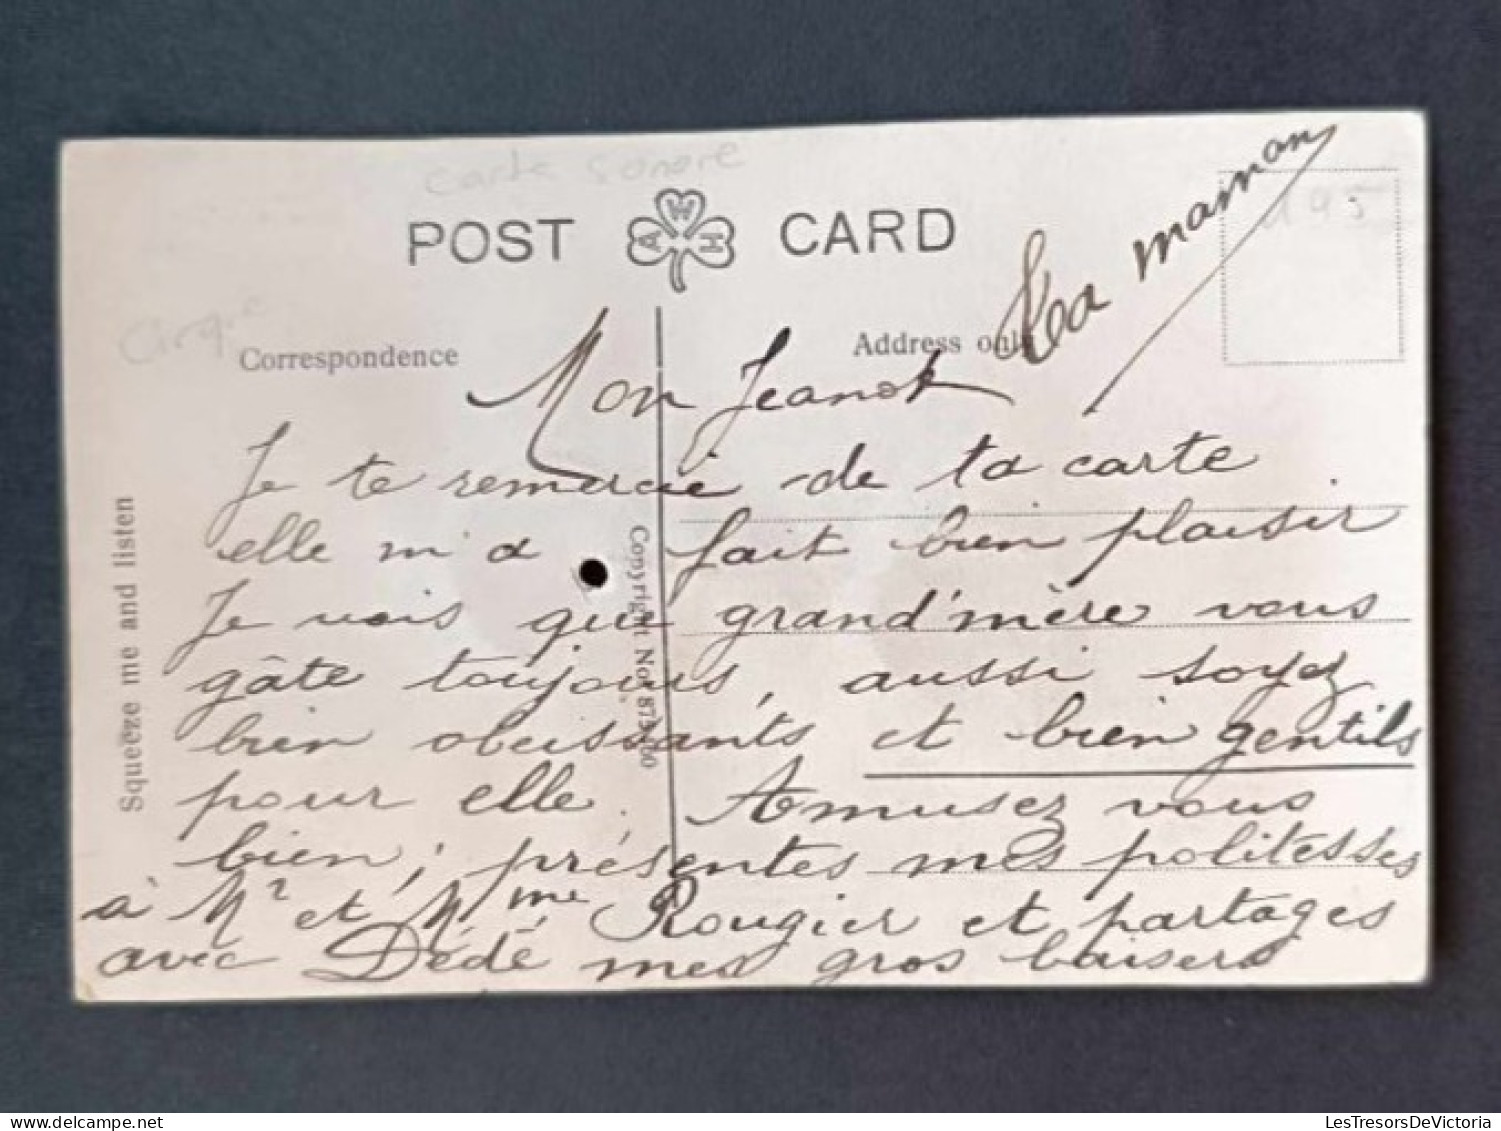 carte sonore
POST CARD
A W H
195
Cirque
Correspondence
Address only
Ta maman
Squeeze me and listen
Copyright No.
Mon Jeanot
Je te remercie de ta carte
elle m'a fait bien plaisir
Je vois que grand'mère vous
gâte toujours, aussi soyez
bien obeissants et bien gentils
pour elle. Amusez vous
bien, présentes mes politesses
à Mr et Mme Rougier et partages
avec Dédé mes gros baisers
LesTresorsDeVictoria